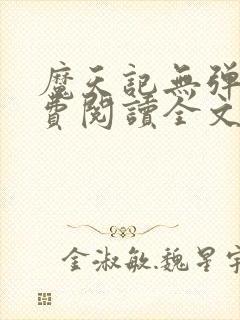 魔天記無弹
費閱讀全文
金淑敏.魏星宇